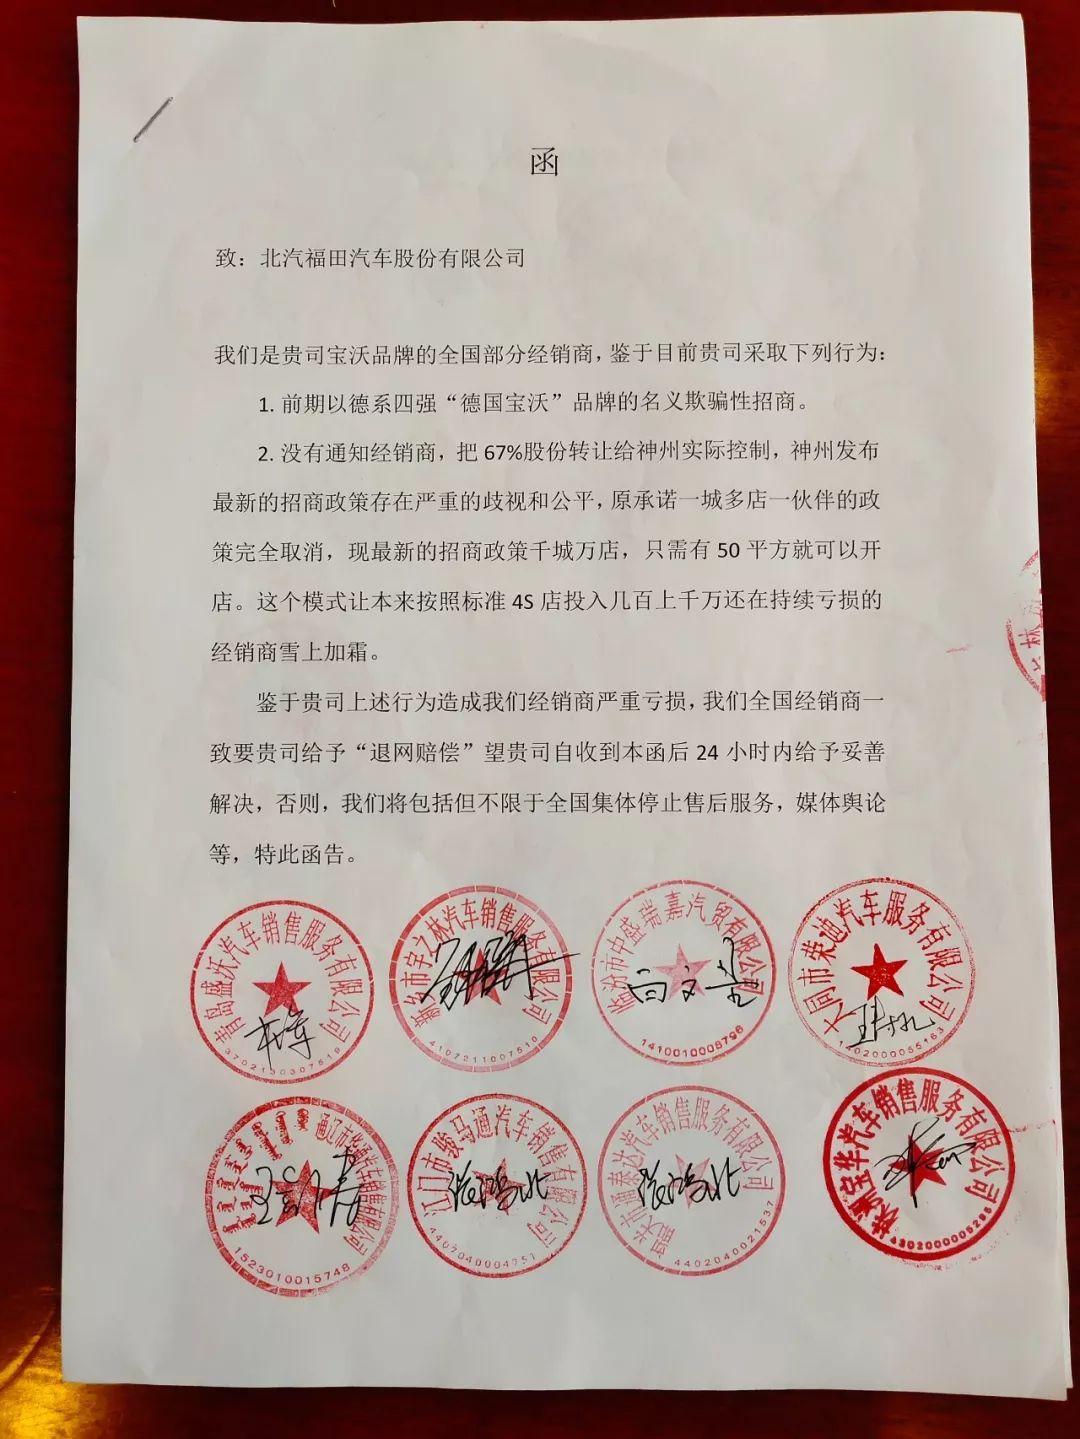 函
致：北汽福田汽车股份有限公司
我们是贵司宝沃品牌的全国部分经销商，鉴于目前贵司采取下列行为：
1. 前期以德系四强“德国宝沃”品牌的名义欺骗性招商。
2. 没有通知经销商，把 67%股份转让给神州实际控制，神州发布
最新的招商政策存在严重的歧视和公平，原承诺一城多店一伙伴的政
策完全取消，现最新的招商政策千城万店，只需有 50 平方就可以开
店。这个模式让本来按照标准 4S 店投入几百上千万还在持续亏损的
经销商雪上加霜。
鉴于贵司上述行为造成我们经销商严重亏损，我们全国经销商一
致要贵司给予“退网赔偿”望贵司自收到本函后 24 小时内给予妥善
解决，否则，我们将包括但不限于全国集体停止售后服务，媒体舆论
等，特此函告。
青岛盛沃汽车销售服务有限公司
新乡市宇之林汽车销售服务有限公司
4107211007510
临汾市中盛瑞嘉汽贸有限公司
1410010008796
大同市荣迪汽车服务有限公司
1402000055163
通辽市华通汽车销售有限公司
1523010015748
江门市骏马通汽车销售有限公司
4407040004751
韶关市通泰达汽车销售服务有限公司
4402040021537
株洲宝华汽车销售服务有限公司
4302000005295